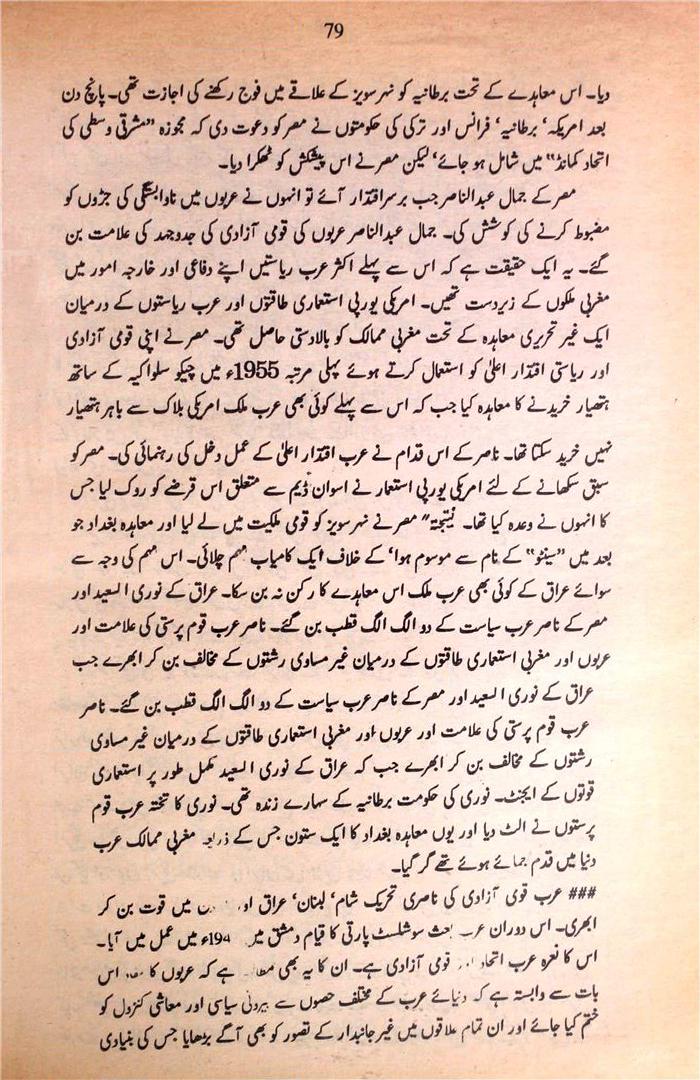 79
دیا۔ اس معاہدے کے تحت برطانیہ کو نہر سویز کے علاقے میں فوج رکھنے کی اجازت تھی۔ پانچ دن
بعد امریکہ‘ برطانیہ‘ فرانس اور ترکی کی حکومتوں نے مصر کو دعوت دی کہ مجوزہ ”مشرقی وسطی کی
اتحاد کمانڈ“ میں شامل ہو جائے‘ لیکن مصر نے اس پیشکش کو ٹھکرا دیا۔
مصر کے جمال عبدالناصر جب برسراقتدار آئے تو انہوں نے عربوں میں ناوابستگی کی جڑوں کو
مضبوط کرنے کی کوشش کی۔ جمال عبدالناصر عربوں کی قومی آزادی کی جدوجہد کی علامت بن
گئے۔ یہ ایک حقیقت ہے کہ اس سے پہلے اکثر عرب ریاستیں اپنے دفاعی اور خارجہ امور میں
مغربی ملکوں کے زیردست تھیں۔ امریکی یورپی استعماری طاقتوں اور عرب ریاستوں کے درمیان
ایک غیر تحریری معاہدہ کے تحت مغربی ممالک کو بالادستی حاصل تھی۔ مصر نے اپنی قومی آزادی
اور ریاستی اقتدار اعلیٰ کو استعمال کرتے ہوئے پہلی مرتبہ 1955ء میں چیکو سلواکیہ کے ساتھ
ہتھیار خریدنے کا معاہدہ کیا جب کہ اس سے پہلے کوئی بھی عرب ملک امریکی بلاک سے باہر ہتھیار
نہیں خرید سکتا تھا۔ ناصر کے اس قدام نے عرب اقتدار اعلیٰ کے عمل دخل کی رہنمائی کی۔ مصر کو
سبق سکھانے کے لئے امریکی یورپی استعمار نے اسوان ڈیم سے متعلق اس قرضے کو روک لیا جس
کا انہوں نے وعدہ کیا تھا۔ نتیجتہ“ مصر نے نہر سویز کو قومی ملکیت میں لے لیا اور معاہدہ بغداد جو
بعد میں ”سینٹو“ کے نام سے موسوم ہوا‘ کے خلاف ایک کامیاب مہم چلائی۔ اس مہم کی وجہ سے
سوائے عراق کے کوئی بھی عرب ملک اس معاہدے کا رکن نہ بن سکا۔ عراق کے نوری السعید اور
مصر کے ناصر عرب سیاست کے دو الگ الگ قطب بن گئے۔ ناصر عرب قوم پرستی کی علامت اور
عربوں اور مغربی استعماری طاقتوں کے درمیان غیر مساوی رشتوں کے مخالف بن کر ابھرے جب
عراق کے نوری السعید اور مصر کے ناصر عرب سیاست کے دو الگ الگ قطب بن گئے۔ ناصر
عرب قوم پرستی کی علامت اور عربوں اور مغربی استعماری طاقتوں کے درمیان غیر مساوی
رشتوں کے مخالف بن کر ابھرے جب کہ عراق کے نوری السعید مکمل طور پر استعماری
قوتوں کے ایجنٹ۔ نوری کی حکومت برطانیہ کے سہارے زندہ تھی۔ نوری کا تختہ عرب قوم
پرستوں نے الٹ دیا اور یوں معاہدہ بغداد کا ایک ستون جس کے ذریعہ مغربی ممالک عرب
دنیا میں قدم جمائے ہوئے تھے گر گیا۔
### عرب قوی آزادی کی ناصری تحریک شام‘ لبنان‘ عراق میں قوت بن کر
ابھری۔ اس دوران عرب بعث سوشلسٹ پارٹی کا قیام دمشق میں میں عمل میں آیا۔
اس کا نعرہ عرب اتحاد قومی آزادی ہے۔ ان کا یہ بھی ہے کہ عربوں کا اس
بات سے وابستہ ہے کہ دنیائے عرب کے مختلف حصوں سے بیرونی سیاسی اور معاشی کنٹرول کو
ختم کیا جائے اور ان تمام علاقوں میں غیر جانبدار کے تصور کو بھی آگے بڑھایا جس کی بنیادی